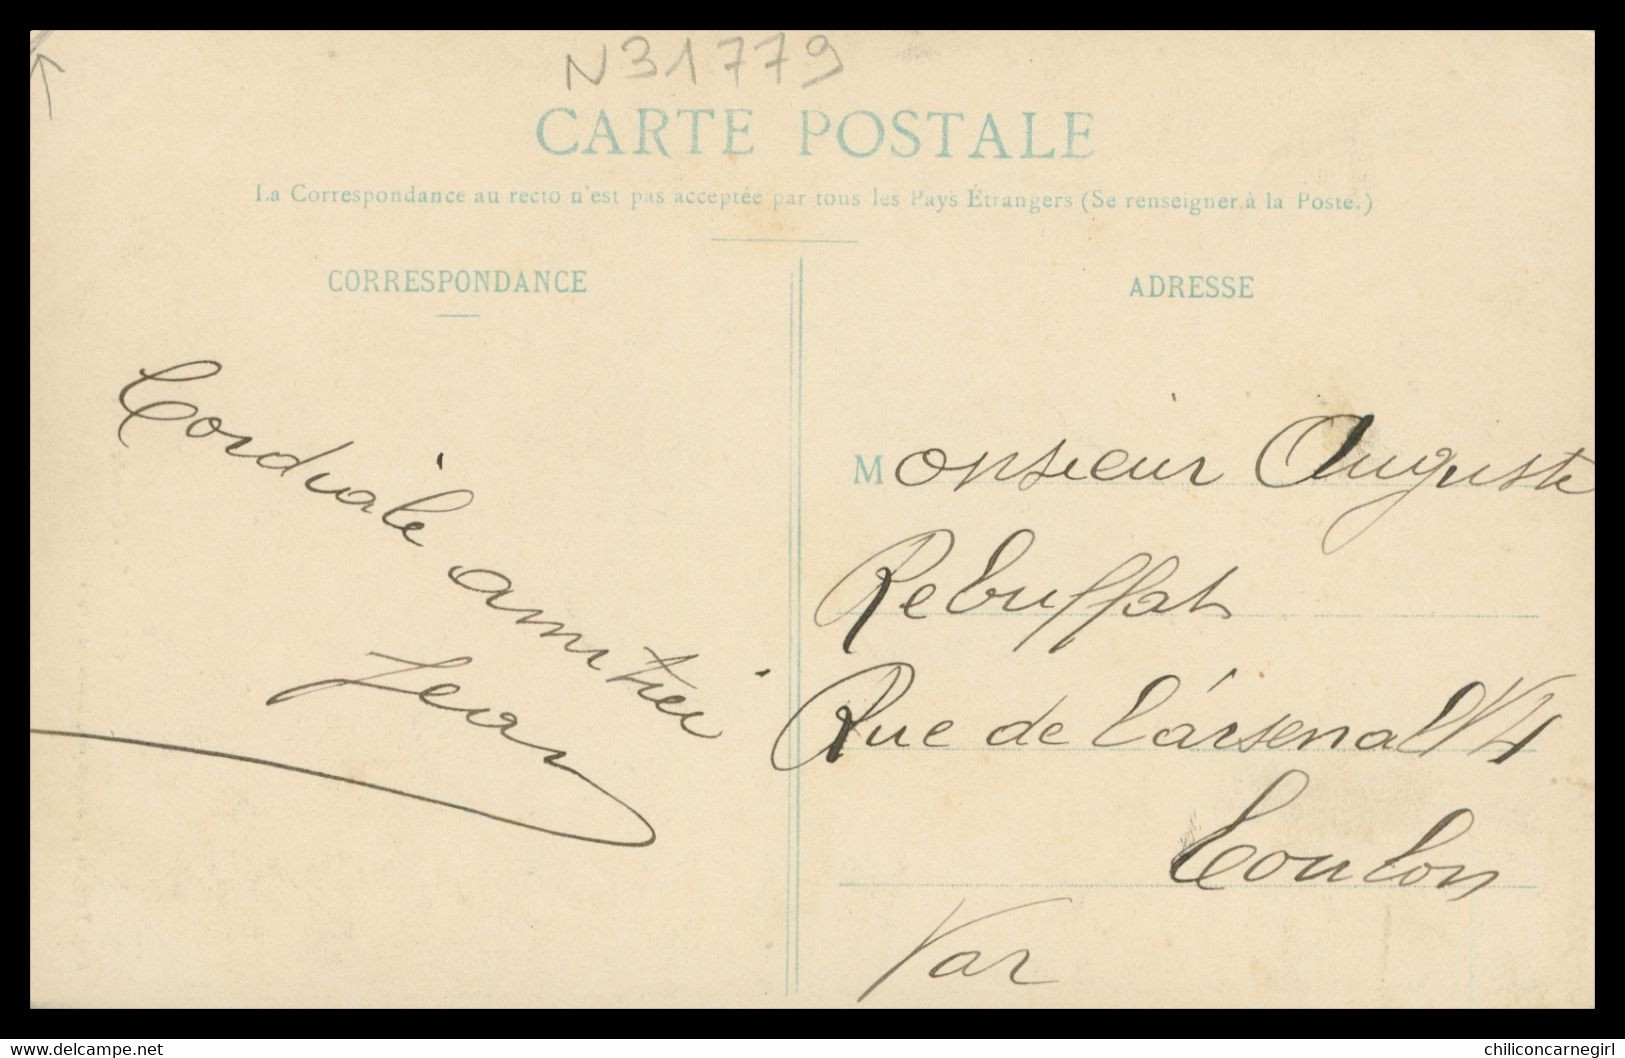 N31779
CARTE POSTALE
La Correspondance au recto n'est pas acceptée par tous les Pays Étrangers (Se renseigner à la Poste.)
CORRESPONDANCE
Cordiale amitié
Jean
ADRESSE
Monsieur Auguste
Rebuffat
Rue de l'arsenal N 4
Toulon
Var
https://www.delcampe.net
chiliconcarnegirl